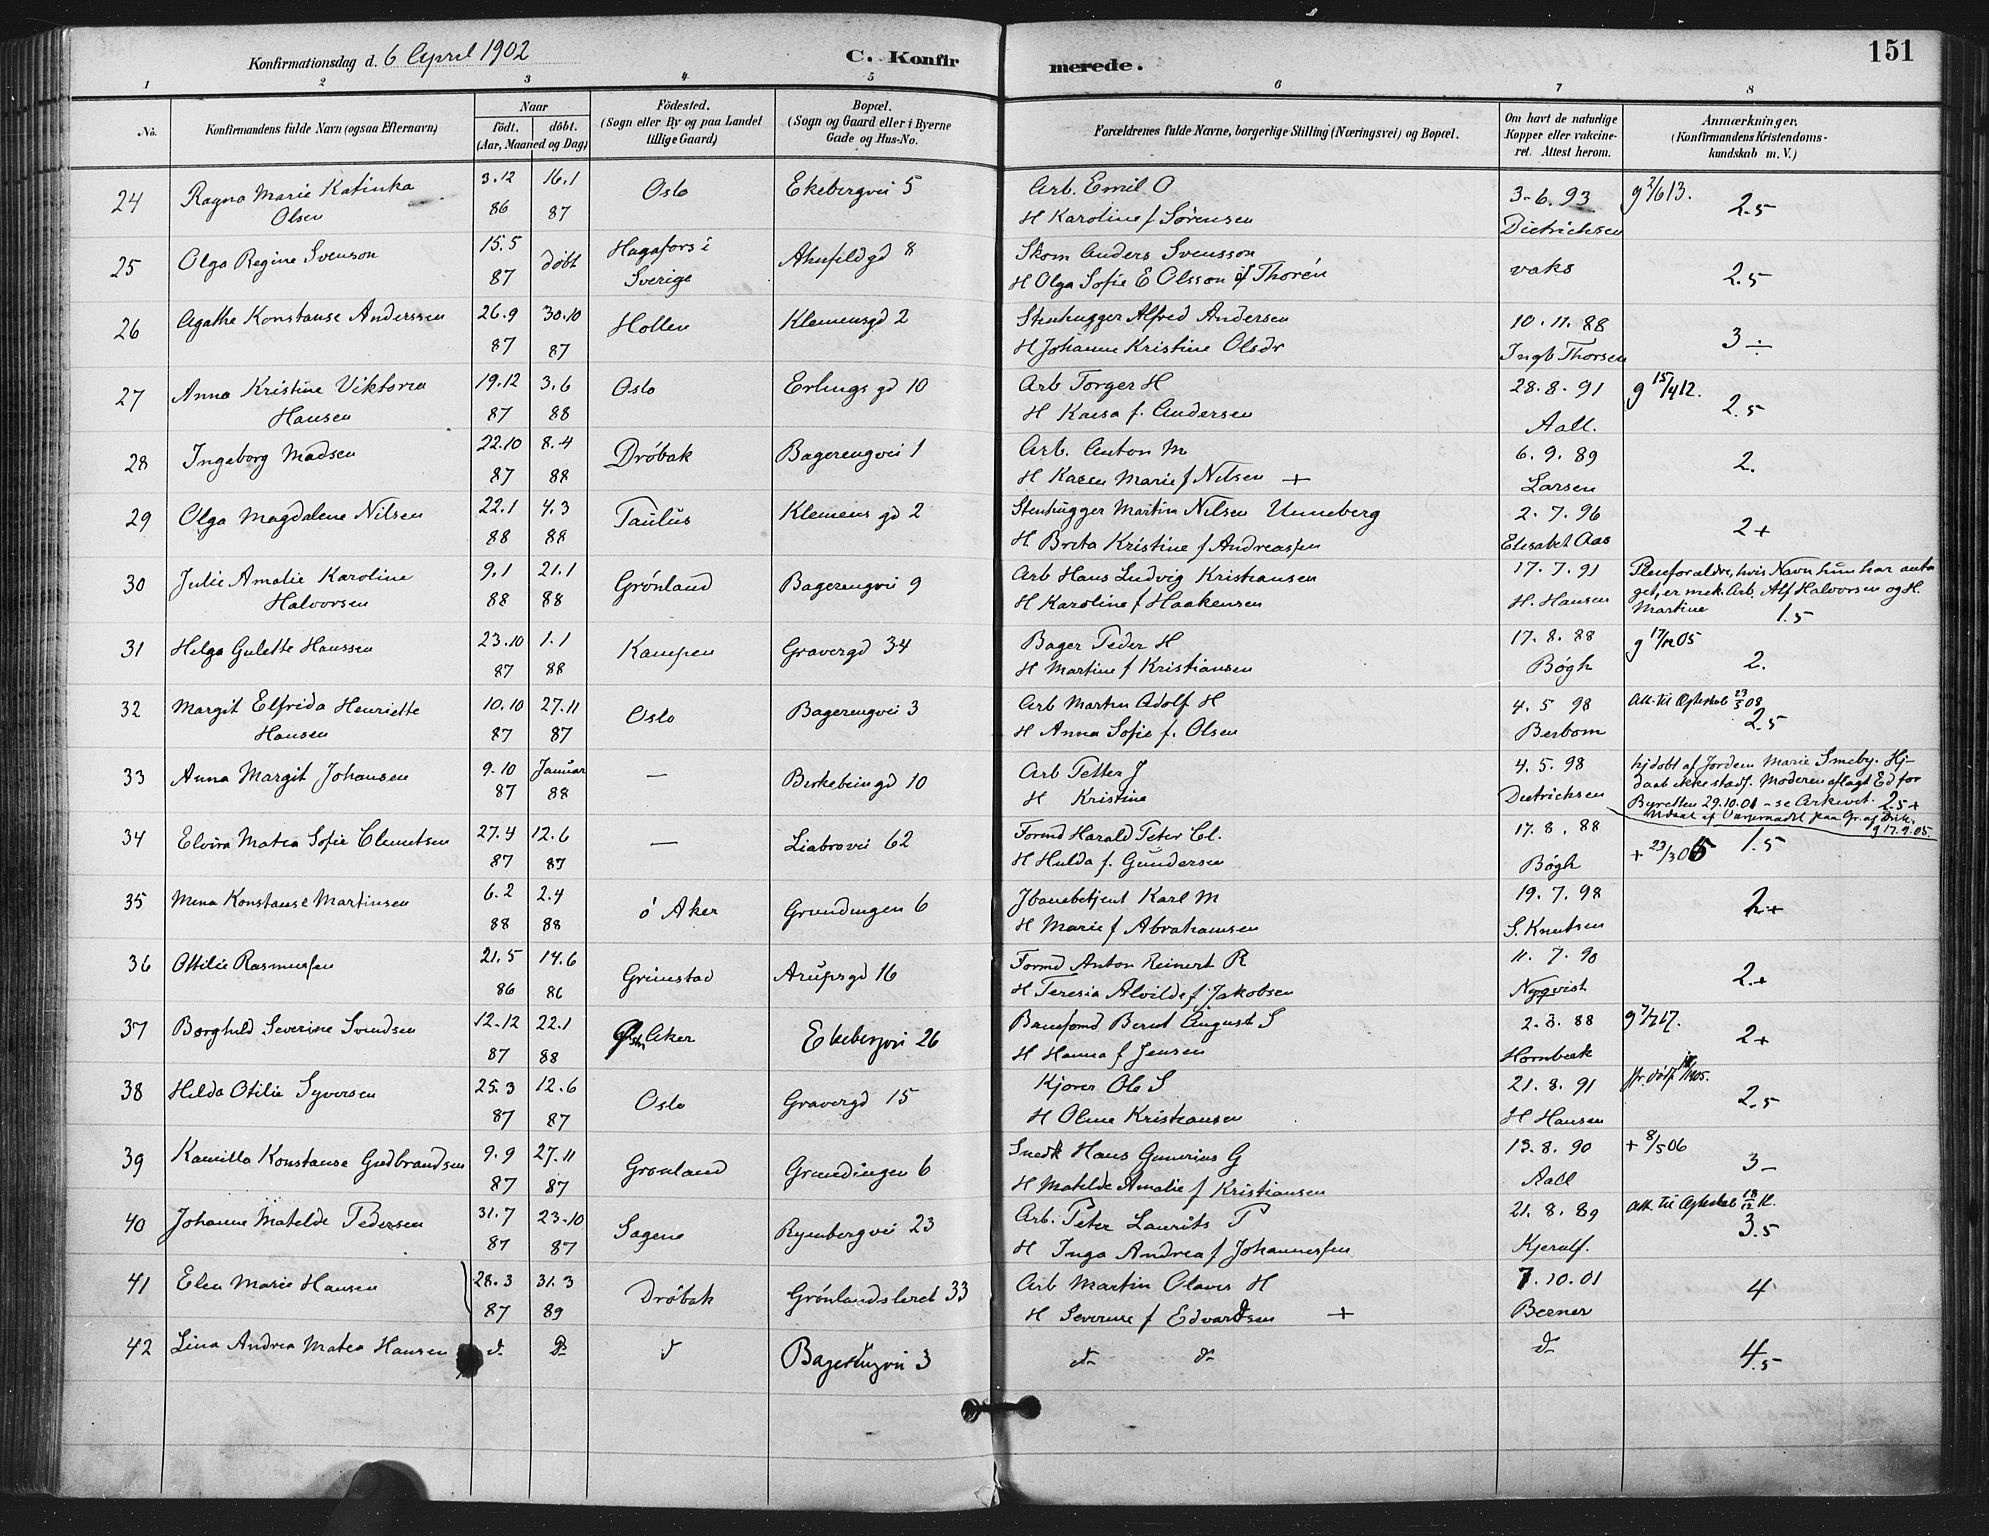 Konfirmationsdag d. 6 April 1902
C. Konfir
merede.
151
1 2 3 4 5 6 7 8
No.
Konfirmandens fulde Navn (ogsaa Efternavn)
Naar
födt. döbt.
(Aar, Maaned og Dag)
Födested.
(Sogn eller By og paa Landet
tillige Gaard)
Bopæl.
(Sogn og Gaard eller i Byerne
Gade og Hus-No.
Forældrenes fulde Navne, borgerlige Stilling (Næringsvei) og Bopæl.
Om havt de naturlige
Kopper eller vakcine-
ret. Attest herom.
Anmærkninger,
(Konfirmandens Kristendoms-
kundskab m. V.)
24 Ragna Marie Katinka 3.12 16.1 Oslo Ekebergvei 5 Arb. Emil O 3-6.93 g 2/6 13. 2.5
Olsen 86 87 H Karoline f Sørensen Dietrichsen
25 Olga Regine Svenson 15.5 döbt Hagafors i Ahnfeldgd 8 Skom Anders Svensson vaks 2.5
87 Sverige H Olga Sofie E Olsson f Thorén
26 Agathe Konstanse Anderssen 26.9 30.10 Hollen Klemensgd 2 Stenhugger Alfred Andersen 10.11.88 3 ÷
87 87 H Johanne Kristine Olsdr Ingb Thorsen
27 Anna Kristine Viktoria 19.12 3.6 Oslo Erlings gd 10 Arb Torger H 28.8.91 g 15/4 12. 2.5
Hansen 87 88 H Kaisa f. Andersen Aall.
28 Ingeborg Madsen 22.10 8.4 Dröbak Bagerengvei 1 Arb. Anton M 6.9.89 2.
87 88 H Karen Marie f Nilsen + Larsen
29 Olga Magdalene Nilsen 22.1 4.3 Paulus Klemens gd 2 Stenhugger Martin Nilsen Unneberg 2.7.96 2+
88 88 H Brita Kristine f Andreassen Elisabet Aas
30 Julie Amalie Karoline 9.1 21.1 Grönland Bagerengvei 9 Arb Hans Ludvig Kristiansen 17.7.91 Pleieforældre, hvis Navn hun har anta
Halvorsen 88 88 H Karoline f Haakensen H. Hansen get, er mek. Arb. Alf Halvorsen og H.
Martine 1.5
31 Helga Gulette Hanssen 23.10 1.1 Kampen Gravergd 34 Bager Peder H 17.8.88 g 17/12 05
87 88 H Martine f Kristiansen Bögh 2.
32 Margit Elfrida Henriette 10.10 27.11 Oslo Bagerengvei 3 Arb Martin Adolf H 4.5 98 Att. til Ægteskab 23/5 08
Hansen 87 87 H Anna Sofie f. Olsen Berbom 2.5
33 Anna Margit Johansen 9.10 Januar — Birkebeingd 10 Arb Petter J 4.5.98 hjdöbt af Jordem Marie Smeby. Hj-
87 88 H Kristine Dietrichsen daab ikke stadf. Moderen aflagt Ed for
Byretten 29.10.01 - se Arkivet. 2.5+
g 17.9.05.
34 Elvira Matea Sofie Clemetsen 27.4 12.6 — Liabrovei 62 Formd Harald Peter Cl. 17.8.88 + 23/3 05 1.5
87 87 H Hulda f. Gundersen Bögh
35 Mina Konstanse Martinsen 6.2 2.4 ö Aker Grundingen 6 Jbanebetjent Karl M 19.7.98 2+
88 88 H Marie f Abrahamsen S. Knutsen
36 Ottilie Rasmussen 21.5 14.6 Grimstad Arupsgd 16 Formd Anton Reinert R 11.7.90 2.+
86 86 H Teresia Alvilde f. Jakobsen Nyqvist
37 Borghild Severine Svendsen 12.12 22.1 Østr Aker Ekebergvei 26 Baneformd Bernt August S 2.3.88 g 7/7 17. 2+
87 88 H Hanna f Jensen Hornbæk
38 Hilda Otilie Syversen 25.3 12.6 Oslo Gravergd 15 Kjører Ole S 21.8.91 2.5
87 87 H Oline Kristiansen H Hansen
39 Kamilla Konstanse Gudbrandsen 9.9 27.11 Grönland Grundingen 6 Snedk Hans Gunerius G 13.8.90 + 8/5 06 3-
87 87 H Matilde Amalie f Kristiansen Aall
40 Johanne Matilde Pedersen 31.7 23.10 Sagene Rynbergvei 23 Arb. Peter Laurits P 21.8.89 Att. til Ægteskab 18/12 11.
87 87 H Inga Andrea f Johannessen Kjerulf. 3.5
41 Elen Marie Hansen 28.3 31.3 Dröbak Grönlandsleret 33 Arb Martin Olaves H 7.10.01 4
87 89 H Severine f Edvardsen + Berner
42 Lina Andrea Matea Hansen do do do Bagerengvei 3 do do do 4.5